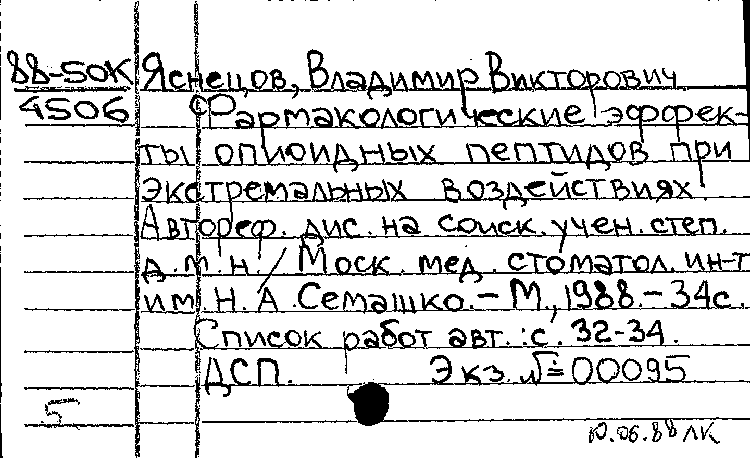 88-50К Яснецов, Владимир Викторович.
4506 Фармакологические эффек-
ты опиоидных пептидов при
экстремальных воздействиях.
Автореф. дис. на соиск. учен. степ.
д.м.н. / Моск. мед. стоматол. ин-т
им. Н.А. Семашко. – М., 1988. – 34с.
Список работ авт.: с. 32-34.
ДСП. Экз. № 00095
5
10.06.88 ЛК